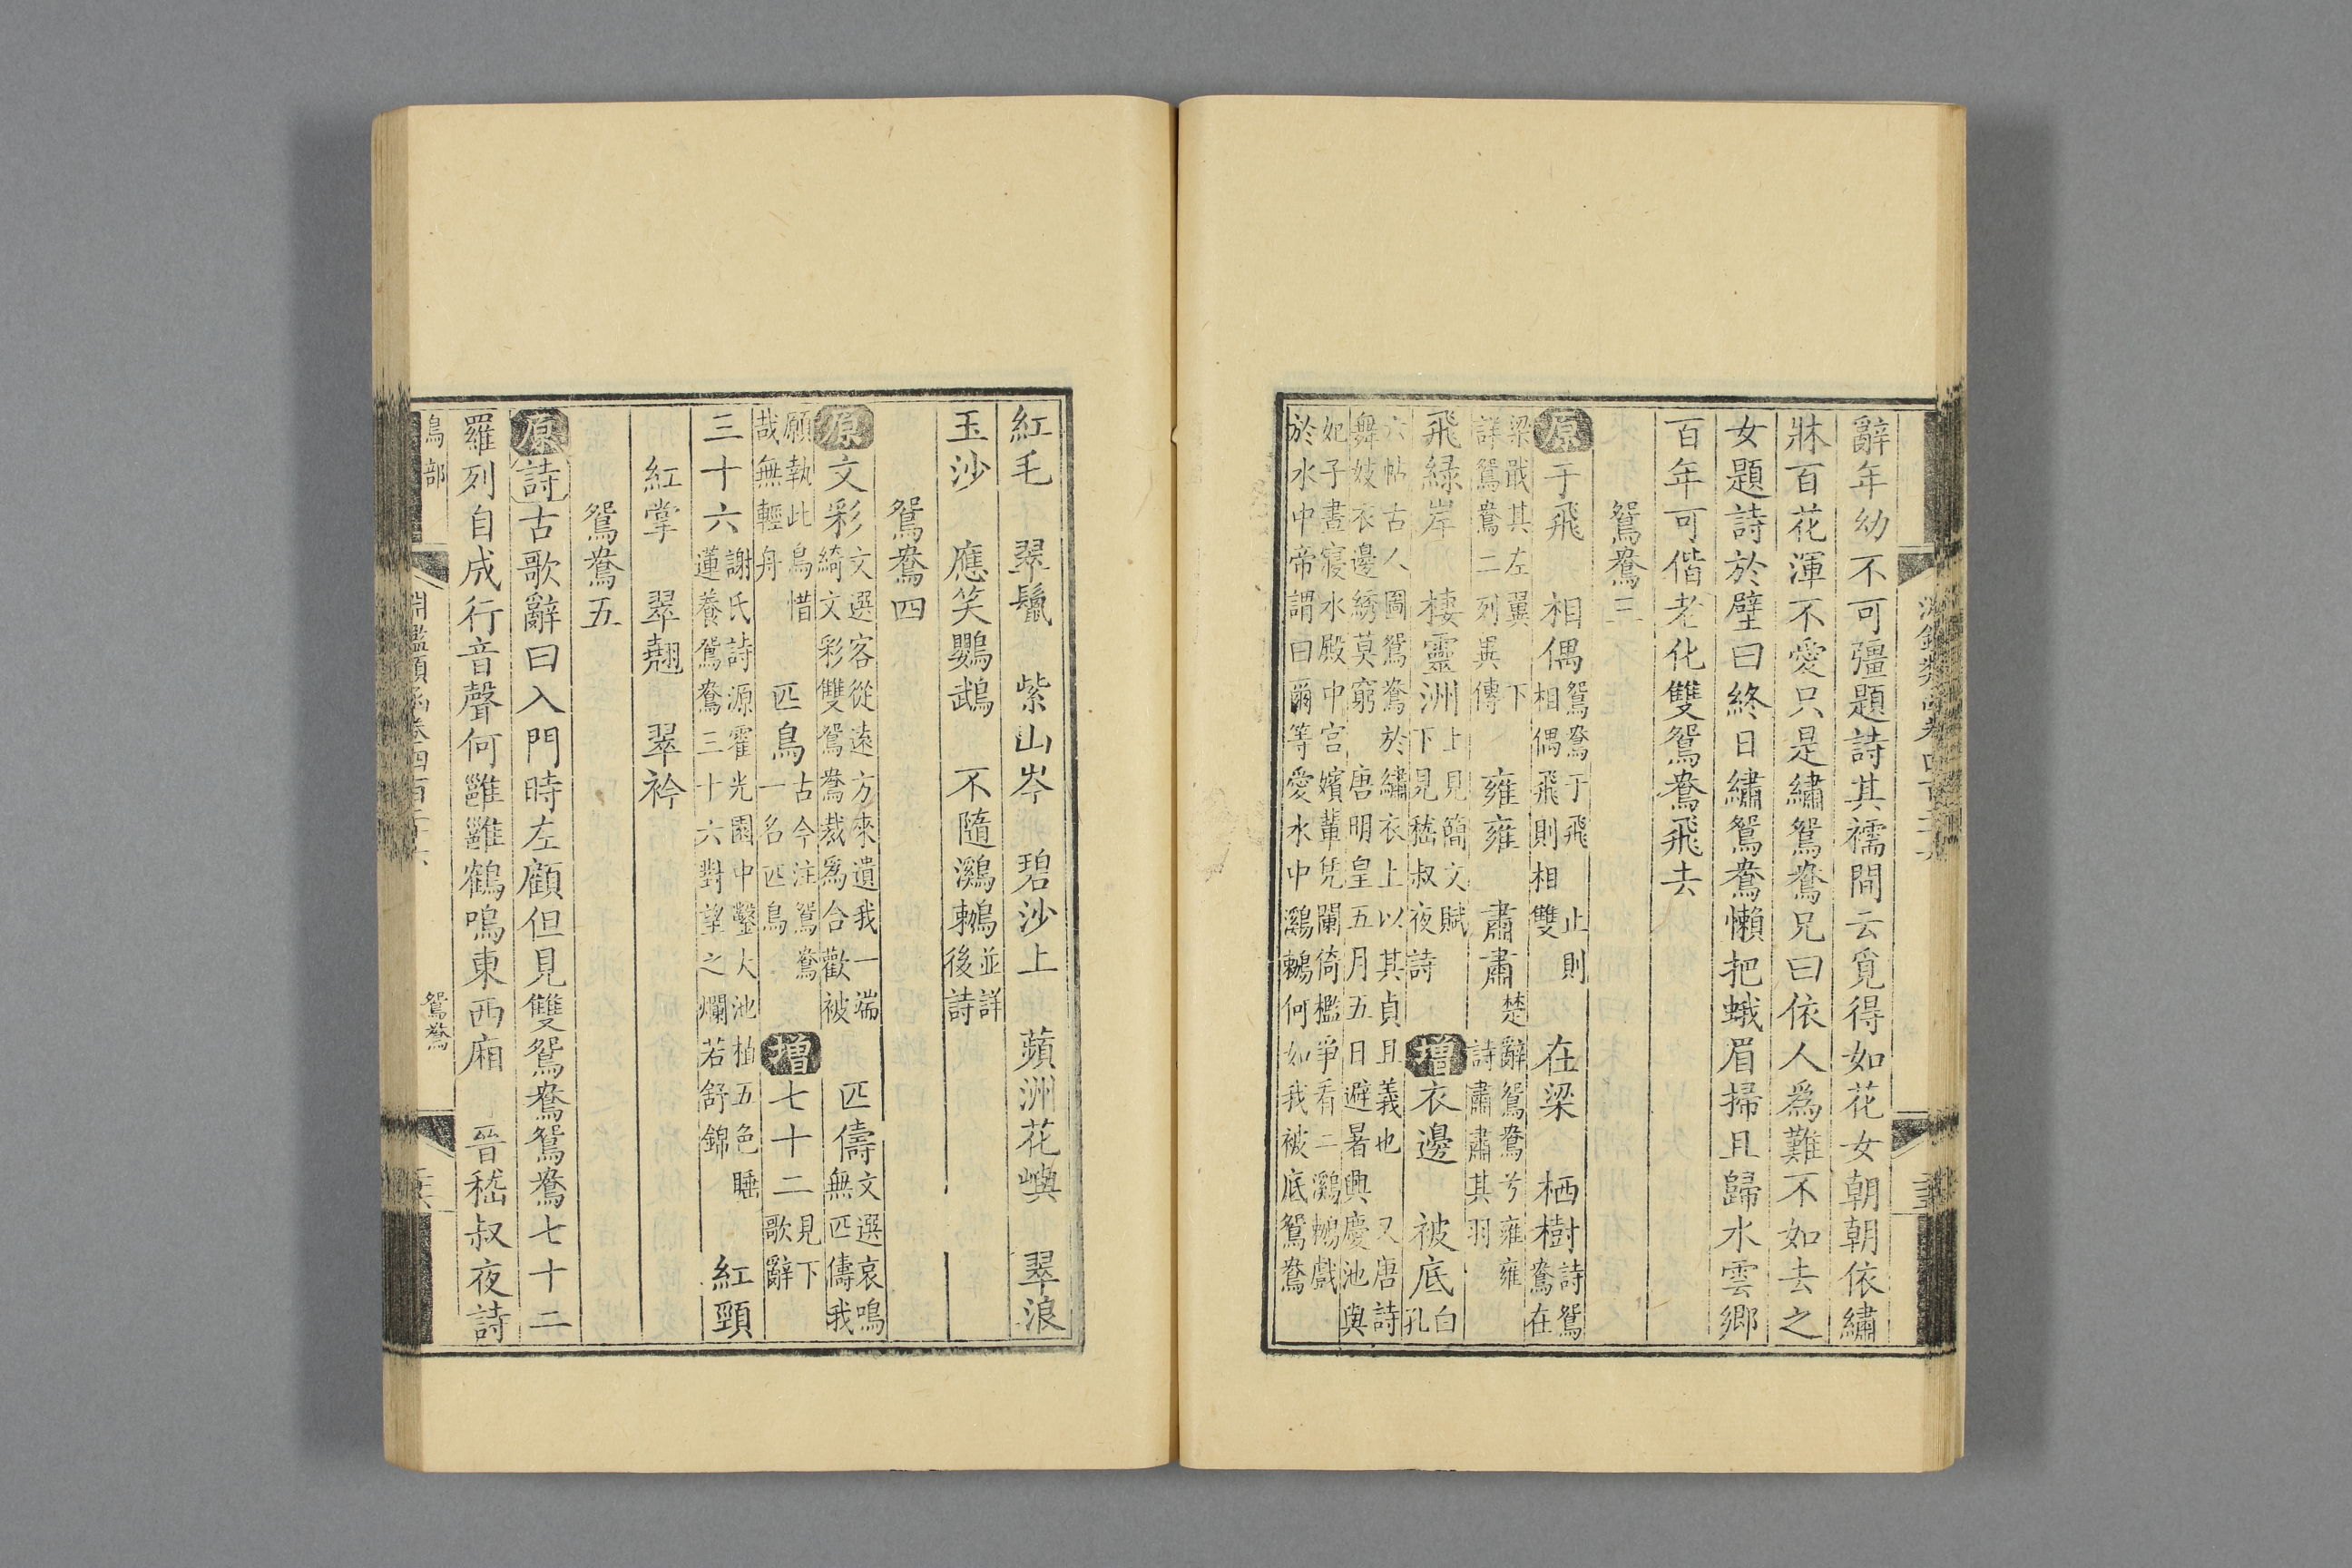 辭年幼不可彊題詩其襦間云覓得如花女朝朝依繡
牀百花渾不愛只是繡鴛鴦兄曰依人爲難不如去之
女題詩於壁曰終日繡鴛鴦懶把蛾眉掃且歸水雲鄉
百年可偕老化雙鴛鴦飛去
鴛鴦三
原于飛 相偶鴛鴦于飛止則相偶飛則相雙 在梁 栖樹詩鴛鴦在
梁戢其左翼下詳鴛鴦二列異傳 雍雍 肅肅楚辭鴛鴦兮雍雍詩肅肅其羽
飛綠岸 棲靈洲上見簡文賦下見嵇叔夜詩 增衣邊 被底白孔
六帖古人圖鴛鴦於繡衣上以其貞且義也又唐詩舞妓衣邊綉莫窮 唐明皇五月五日避暑興慶池與
妃子晝寢水殿中宮嬪輩凭闌倚檻爭看二鸂鶒戲於水中帝謂曰爾等愛水中鸂鶒何如我被底鴛鴦
紅毛 翠鬣 紫山岑 碧沙上 蘋洲花嶼 翠浪
玉沙 應笑鸚鵡 不隨鸂鶒並詳後詩
鴛鴦四
原文彩文選客從遠方來遺我一端綺文彩雙鴛鴦裁爲合歡被 匹儔文選哀鳴無匹儔我
願執此鳥惜哉無輕舟 匹鳥古今注鴛鴦一名匹鳥 增七十二見下歌辭
三十六謝氏詩源霍光園中鑿大池植五色睡蓮養鴛鴦三十六對望之爛若舒錦 紅頸
紅掌 翠翹 翠衿
鴛鴦五
原詩古歌辭曰入門時左顧但見雙鴛鴦鴛鴦七十二
羅列自成行音聲何雝雝鶴鳴東西廂 晉嵇叔夜詩
鳥部
淵鑑類函卷四百二十六
鴛鴦